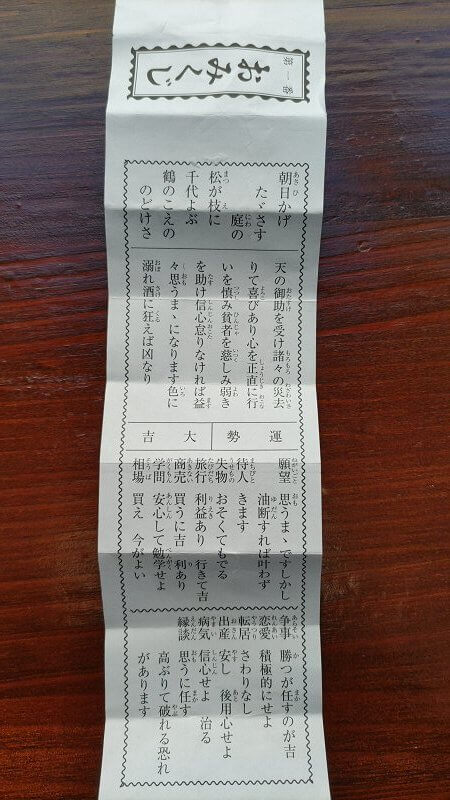 第一番
おみくじ
朝日かげ
たゞさす
庭の
松が枝に
千代よぶ
鶴のこえの
のどけさ
天の御助を受け諸々の災去
りて喜びあり心を正直に行
いを慎み貧者を慈しみ弱き
を助け信心怠りなければ益
々思うまゝになります色に
溺れ酒に狂えば凶なり
運勢
大吉
願望 思うまゝですしかし
油断すれば叶わず
待人 きます
失物 おそくてもでる
旅行 利益あり 行きて吉
商売 買うに吉 利あり
学問 安心して勉学せよ
相場 買え 今がよい
争事 勝つが任すのが吉
恋愛 積極的にせよ
転居 さわりなし
出産 安し 後用心せよ
病気 信心せよ 治る
縁談 思うに任す
高ぶりて破れる恐れ
があります